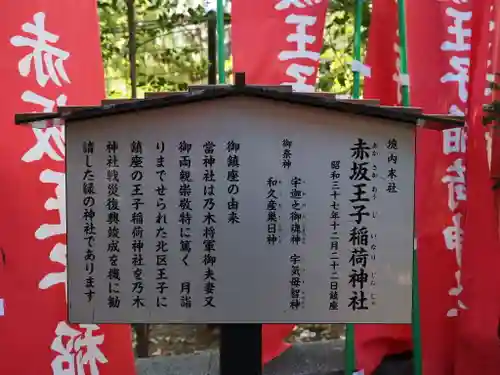 境内末社
赤坂王子稲荷神社
あかさかおうじいなりじんじゃ
昭和三十七年十二月二十二日鎮座
御祭神
宇迦之御魂神 宇気母智神
和久産巣日神
御鎮座の由来
当神社は乃木将軍御夫妻又
御両親崇敬特に篤く 月詣
りまでせられた北区王子に
鎮座の王子稲荷神社を乃木
神社戦災復興竣成を機に勧
請した縁の神社であります
赤坂王子稲
坂王子稲荷神社